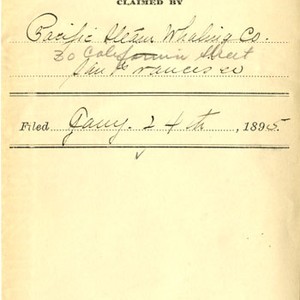 CLAIMED BY
Pacific Steam Whaling Co.
30 California Street
San Francisco
Filed Jany. 24th, 1895